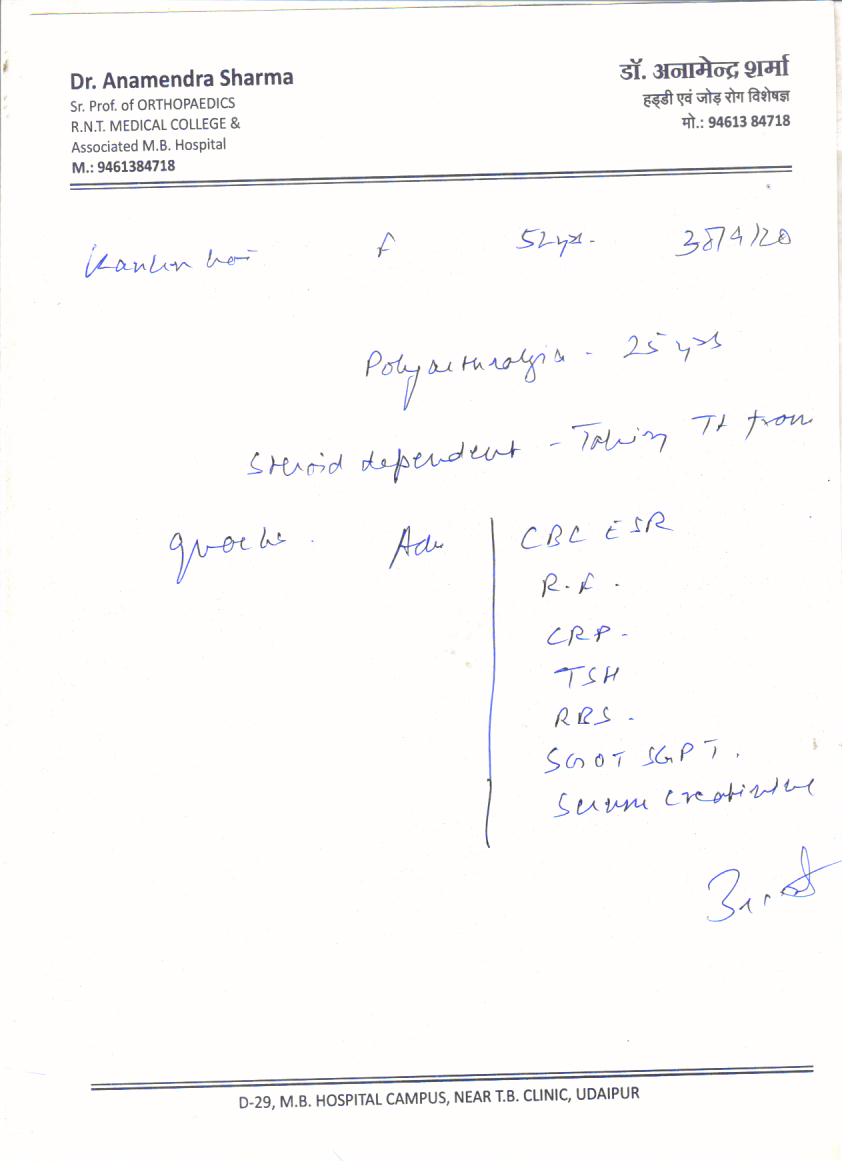 Dr. Anamendra Sharma
Sr. Prof. of ORTHOPAEDICS
R.N.T. MEDICAL COLLEGE &
Associated M.B. Hospital
M.: 9461384718
डॉ. अनामेन्द्र शर्मा
हड्डी एवं जोड़ रोग विशेषज्ञ
मो.: 94613 84718
f 52 yrs.
Polyarthralgia - 25 yrs
Steroid dependent - Taking Tt from
quacks. Adv
CBC ESR
R.F.
CRP.
TSH
RBS.
SGOT SGPT.
Serum creatinine
D-29, M.B. HOSPITAL CAMPUS, NEAR T.B. CLINIC, UDAIPUR